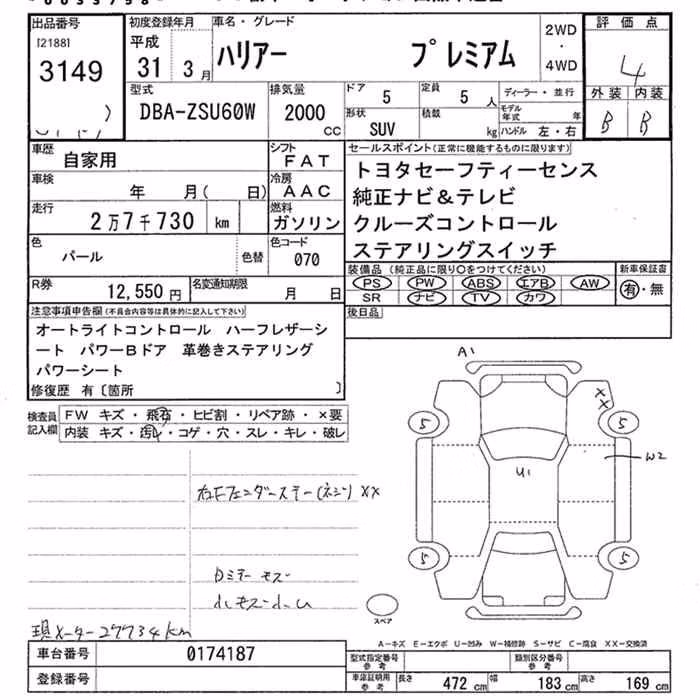 出品番号
[2188]
3149
初度登録年月
平成
31 3月
車名・グレード
ハリアー プレミアム
2WD
・
4WD
評価点
4
外装 内装
B B
型式
DBA-ZSU60W
排気量
2000
CC
ドア
5
定員
5人
形状
SUV
積数
kg
ディーラー・並行
モデル年式 年
ハンドル 左・右
車歴
自家用
シフト
FAT
車検
年 月( 日)
冷房
AAC
走行
2万7千730 km
燃料
ガソリン
色
パール
色替
色コード
070
R券
12,550円
名変通知期限
月 日
セールスポイント(正常に機能するものに限ります)
トヨタセーフティーセンス
純正ナビ&テレビ
クルーズコントロール
ステアリングスイッチ
装備品(純正品に限り○をつけてください)
PS PW ABS エアB AW
SR ナビ TV カワ
新車保証書
有・無
後日品
注意事項申告欄(不具合内容等は具体的に記入して下さい)
オートライトコントロール ハーフレザーシ
ート パワーBドア 革巻きステアリング
パワーシート
修復歴 有〔箇所 〕
検査員
記入欄
FW キズ・飛石・ヒビ割・リペア跡・×要
内装 キズ・汚レ・コゲ・穴・スレ・キレ・破レ
右Fフェンダーステー(ネジ)XX
小キズ小凹
現メーター27734km
A1
XX
5
5
U1
W2
5
5
スペア
A-キズ E-エクボ U-凹み W-補修跡 S-サビ C-腐食 XX-交換済
車台番号
0174187
登録番号
型式指定番号
参考
類別区分番号
参考
車庫証明用
参考
長さ 472cm 幅 183cm 高さ 169cm